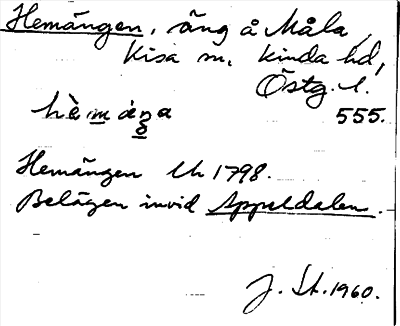 Hemängen, äng å Måla,
Kisa sn, Kinda hd,
Östg. l.
hèmáŋa 555.
Hemängen Uh 1798.
Belägen invid Appeldalen.
J. St. 1960.